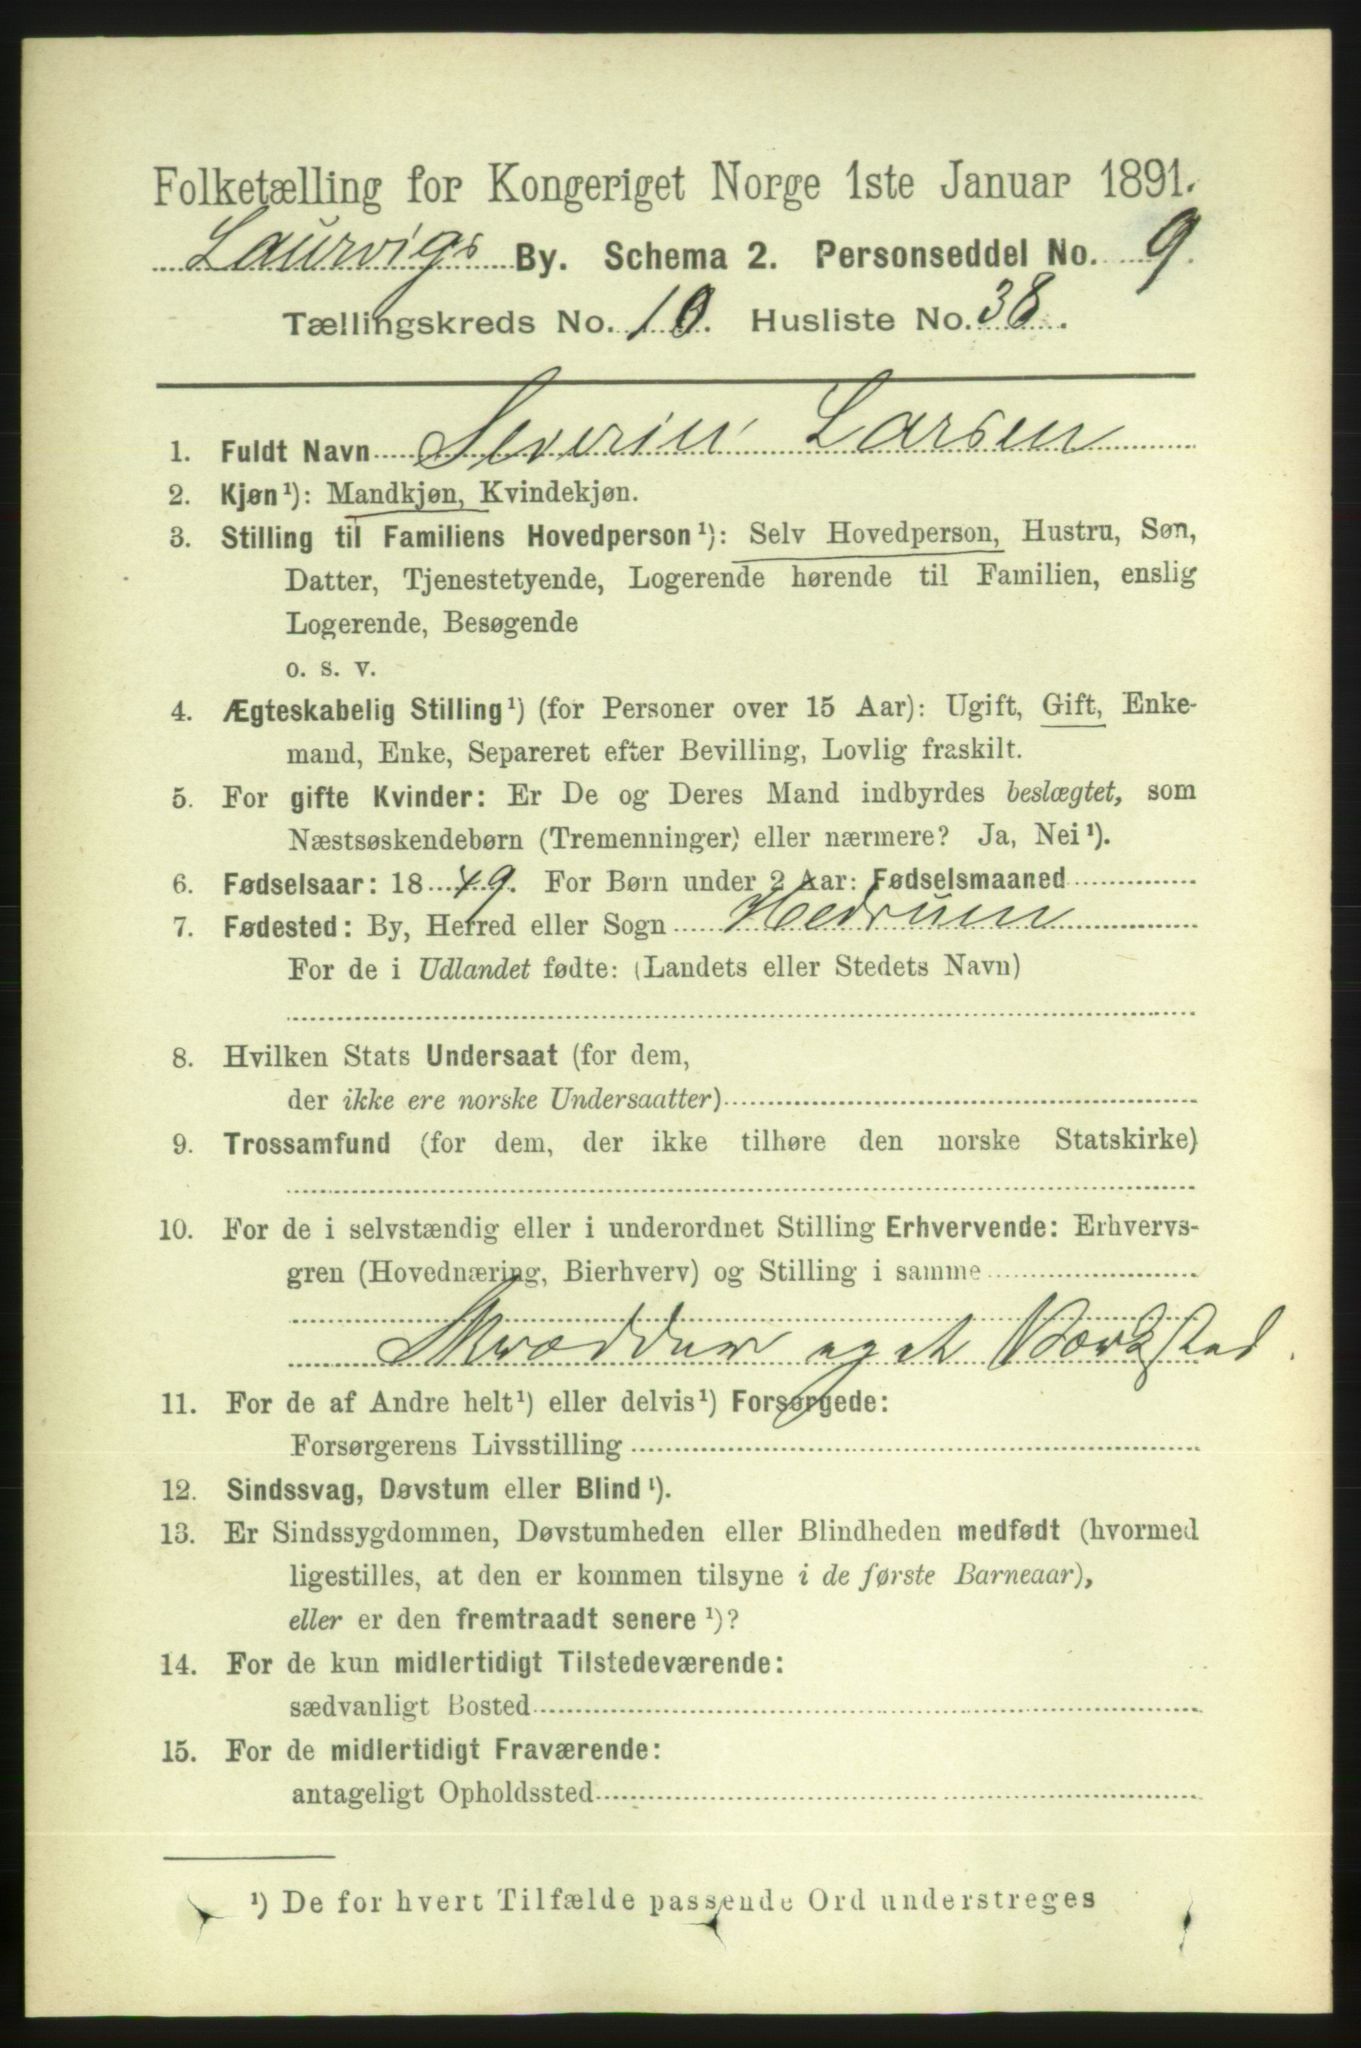 Folketælling for Kongeriget Norge 1ste Januar 1891.
Laurvigs By. Schema 2. Personseddel No. 9.
Tællingskreds No. 10. Husliste No. 38.
1. Fuldt Navn Severin Larsen
2. Kjøn¹): Mandkjøn, Kvindekjøn.
3. Stilling til Familiens Hovedperson¹): Selv Hovedperson, Hustru, Søn,
Datter, Tjenestetyende, Logerende hørende til Familien, enslig
Logerende, Besøgende
o. s. v.
4. Ægteskabelig Stilling¹) (for Personer over 15 Aar): Ugift, Gift, Enke-
mand, Enke, Separeret efter Bevilling, Lovlig fraskilt.
5. For gifte Kvinder: Er De og Deres Mand indbyrdes beslægtet, som
Næstsøskendebørn (Tremenninger) eller nærmere? Ja, Nei¹).
6. Fødselsaar: 1849. For Børn under 2 Aar: Fødselsmaaned
7. Fødested: By, Herred eller Sogn Hedrum
For de i Udlandet fødte: (Landets eller Stedets Navn)
8. Hvilken Stats Undersaat (for dem,
der ikke ere norske Undersaatter)
9. Trossamfund (for dem, der ikke tilhøre den norske Statskirke)
10. For de i selvstændig eller i underordnet Stilling Erhvervende: Erhvervs-
gren (Hovednæring, Bierhverv) og Stilling i samme
Skrædder eget Værksted.
11. For de af Andre helt¹) eller delvis¹) Forsørgede:
Forsørgerens Livsstilling
12. Sindssvag, Døvstum eller Blind¹).
13. Er Sindssygdommen, Døvstumheden eller Blindheden medfødt (hvormed
ligestilles, at den er kommen tilsyne i de første Barneaar),
eller er den fremtraadt senere¹)?
14. For de kun midlertidigt Tilstedeværende:
sædvanligt Bosted
15. For de midlertidigt Fraværende:
antageligt Opholdssted
¹) De for hvert Tilfælde passende Ord understreges